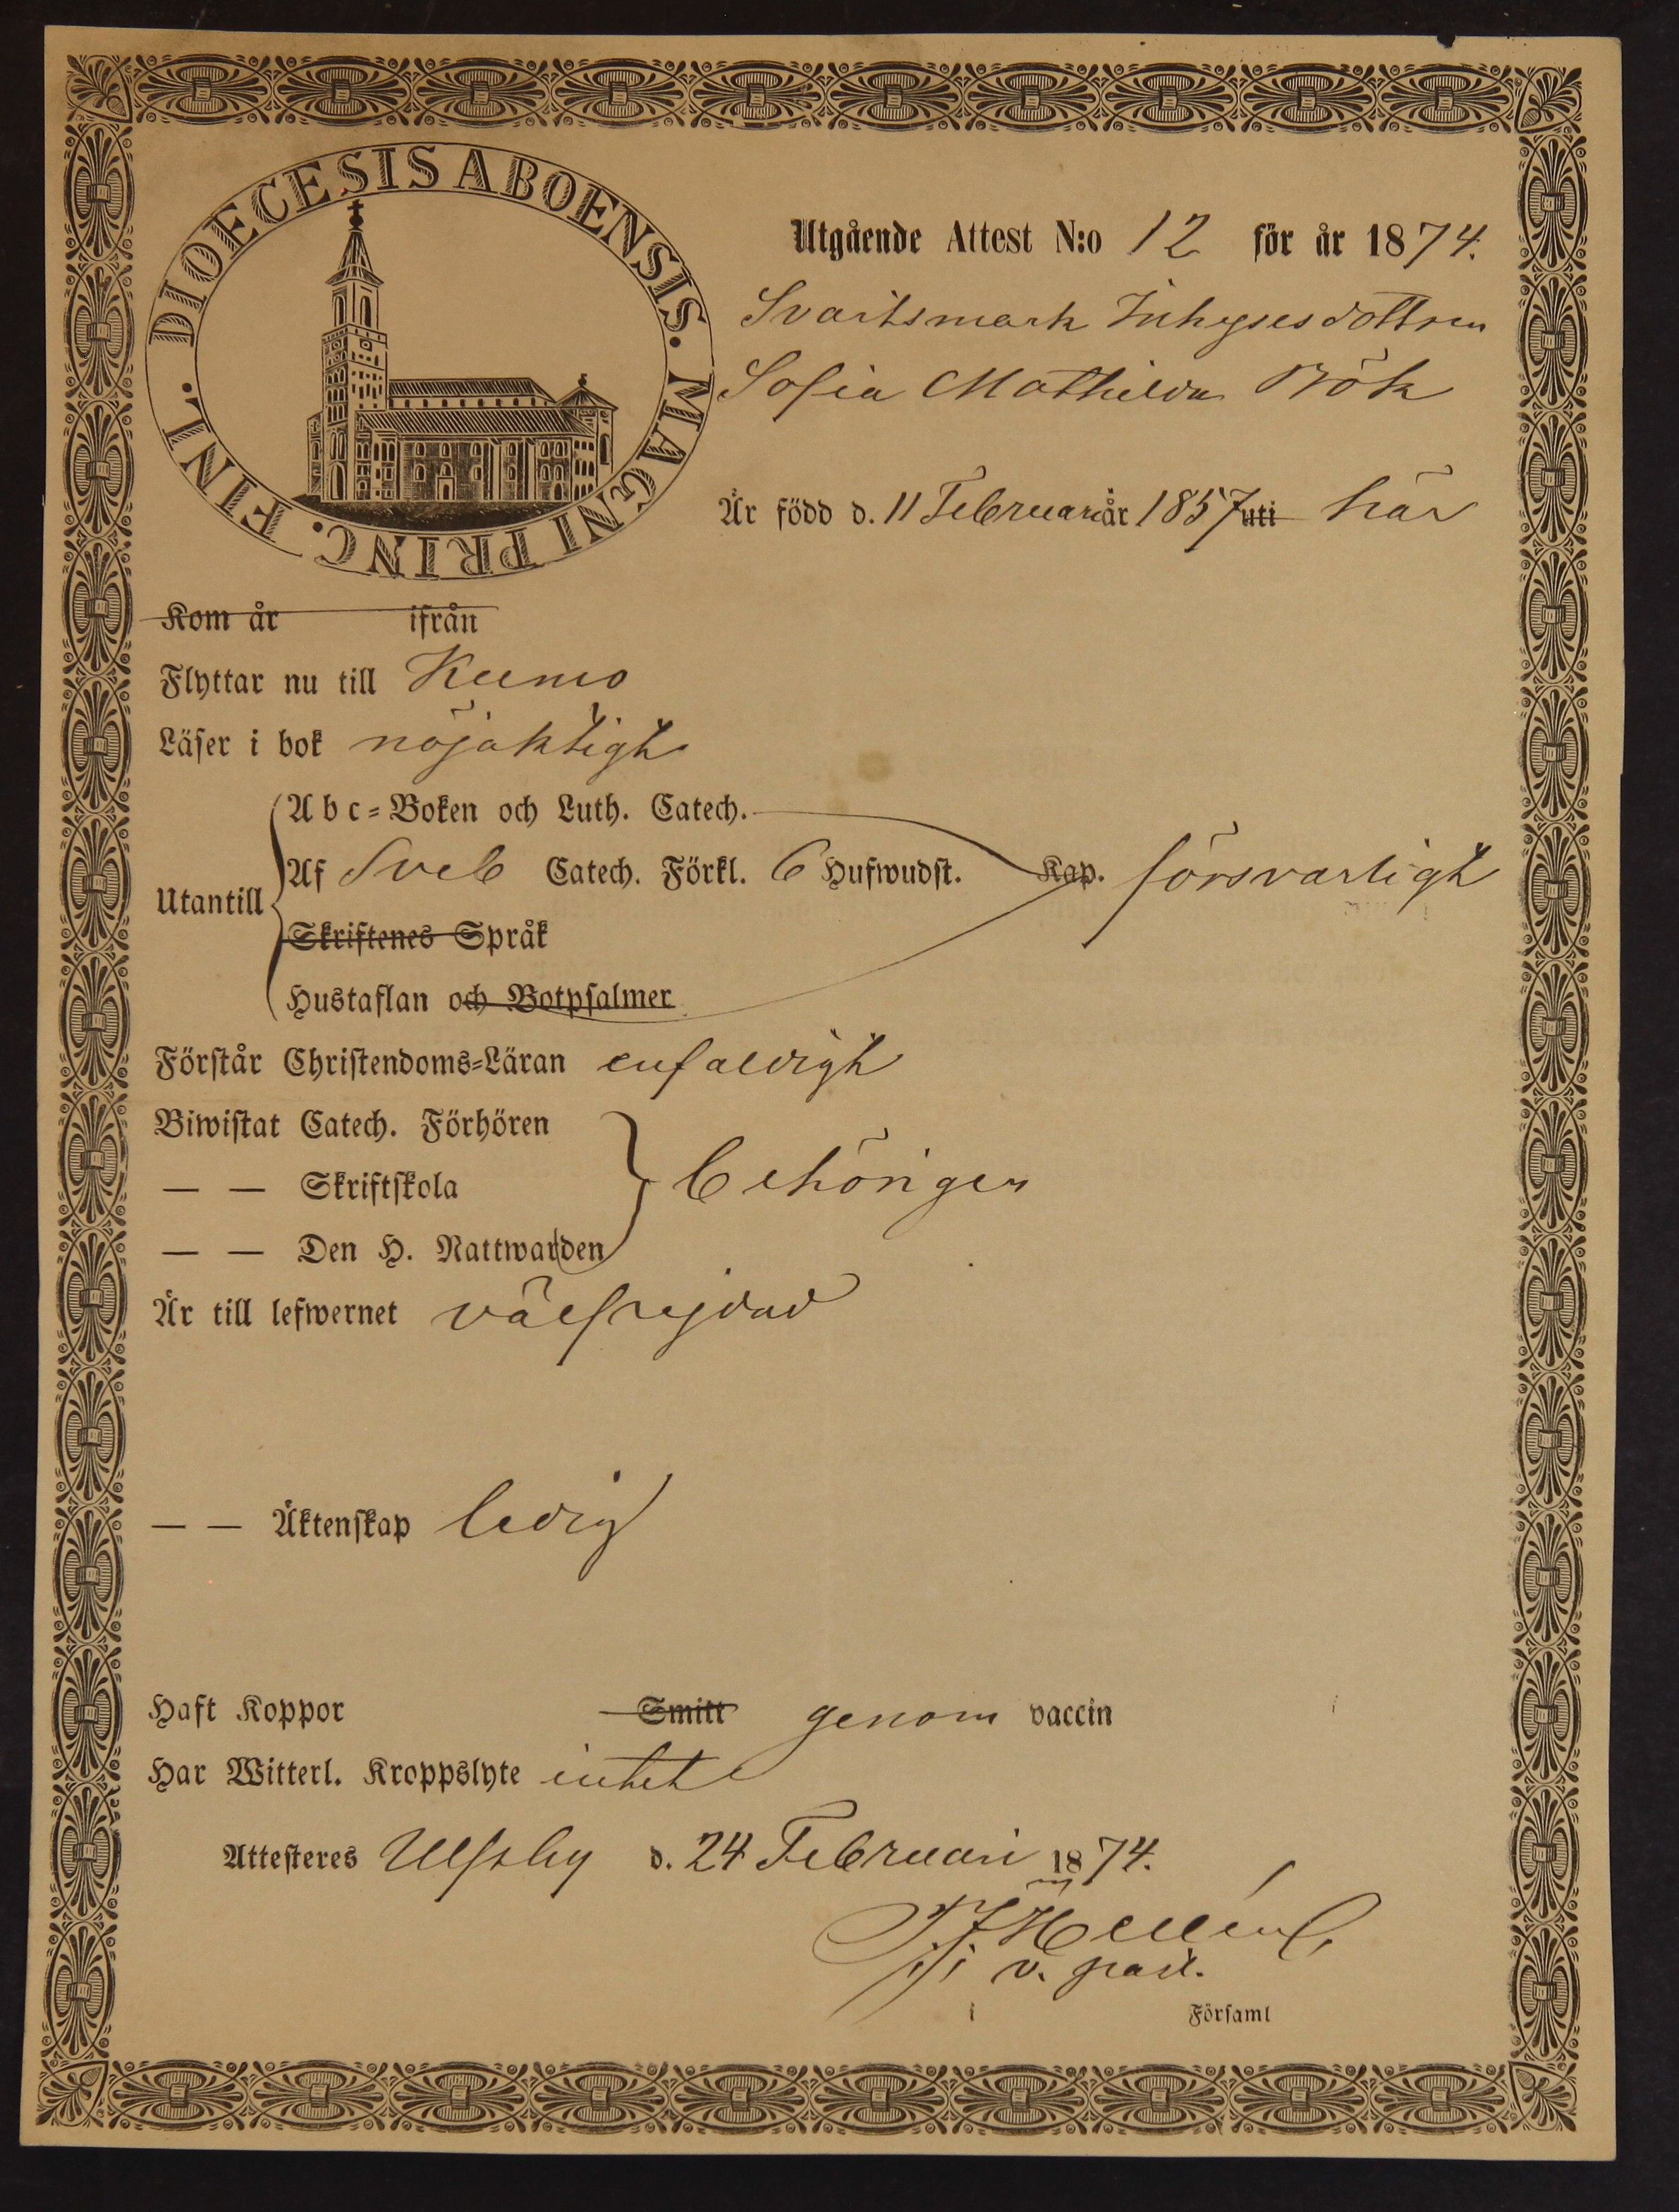 DIOECESIS ABOENSIS. MAGNI PRINC. FINL.
Utgående Attest N:o 12 för år 1874.
Svartsmark Inhysesdottren
Sofia Mathilda Bök
Är född d. 11 Februari år 1857 uti här
Kom år ifrån
Flyttar nu till Kumo
Läser i bok nöjaktigt
Abc=Boken och Luth. Catech.
Utantill Af Sveb Catech. Förkl. 6 Hufwudst. Kap. försvarligt
Skriftenes Språk
Hustaflan och Botpsalmer
Förstår Christendoms=Läran enfaldigt
Biwistat Catech. Förhören
— — Skriftskola behörigen
— — Den H. Nattwarden
Är till lefwernet välfrejdad
— — Äktenskap ledig
Haft Koppor Smitt genom vaccin
Har Witterl. Kroppslyte intet
Attesteres Ulfsby d. 24 Februari 1874.
Hellén
v. past.
i Församl